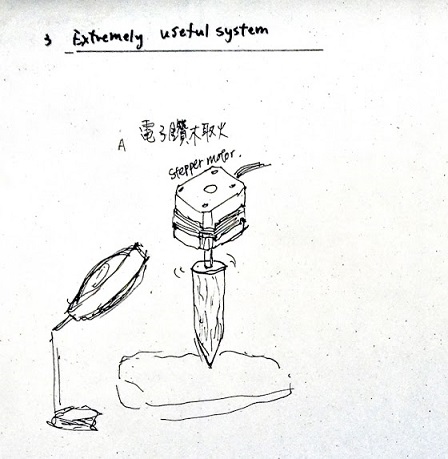 3 Extremely useful system
A 電子鑽木取火
Stepper motor.